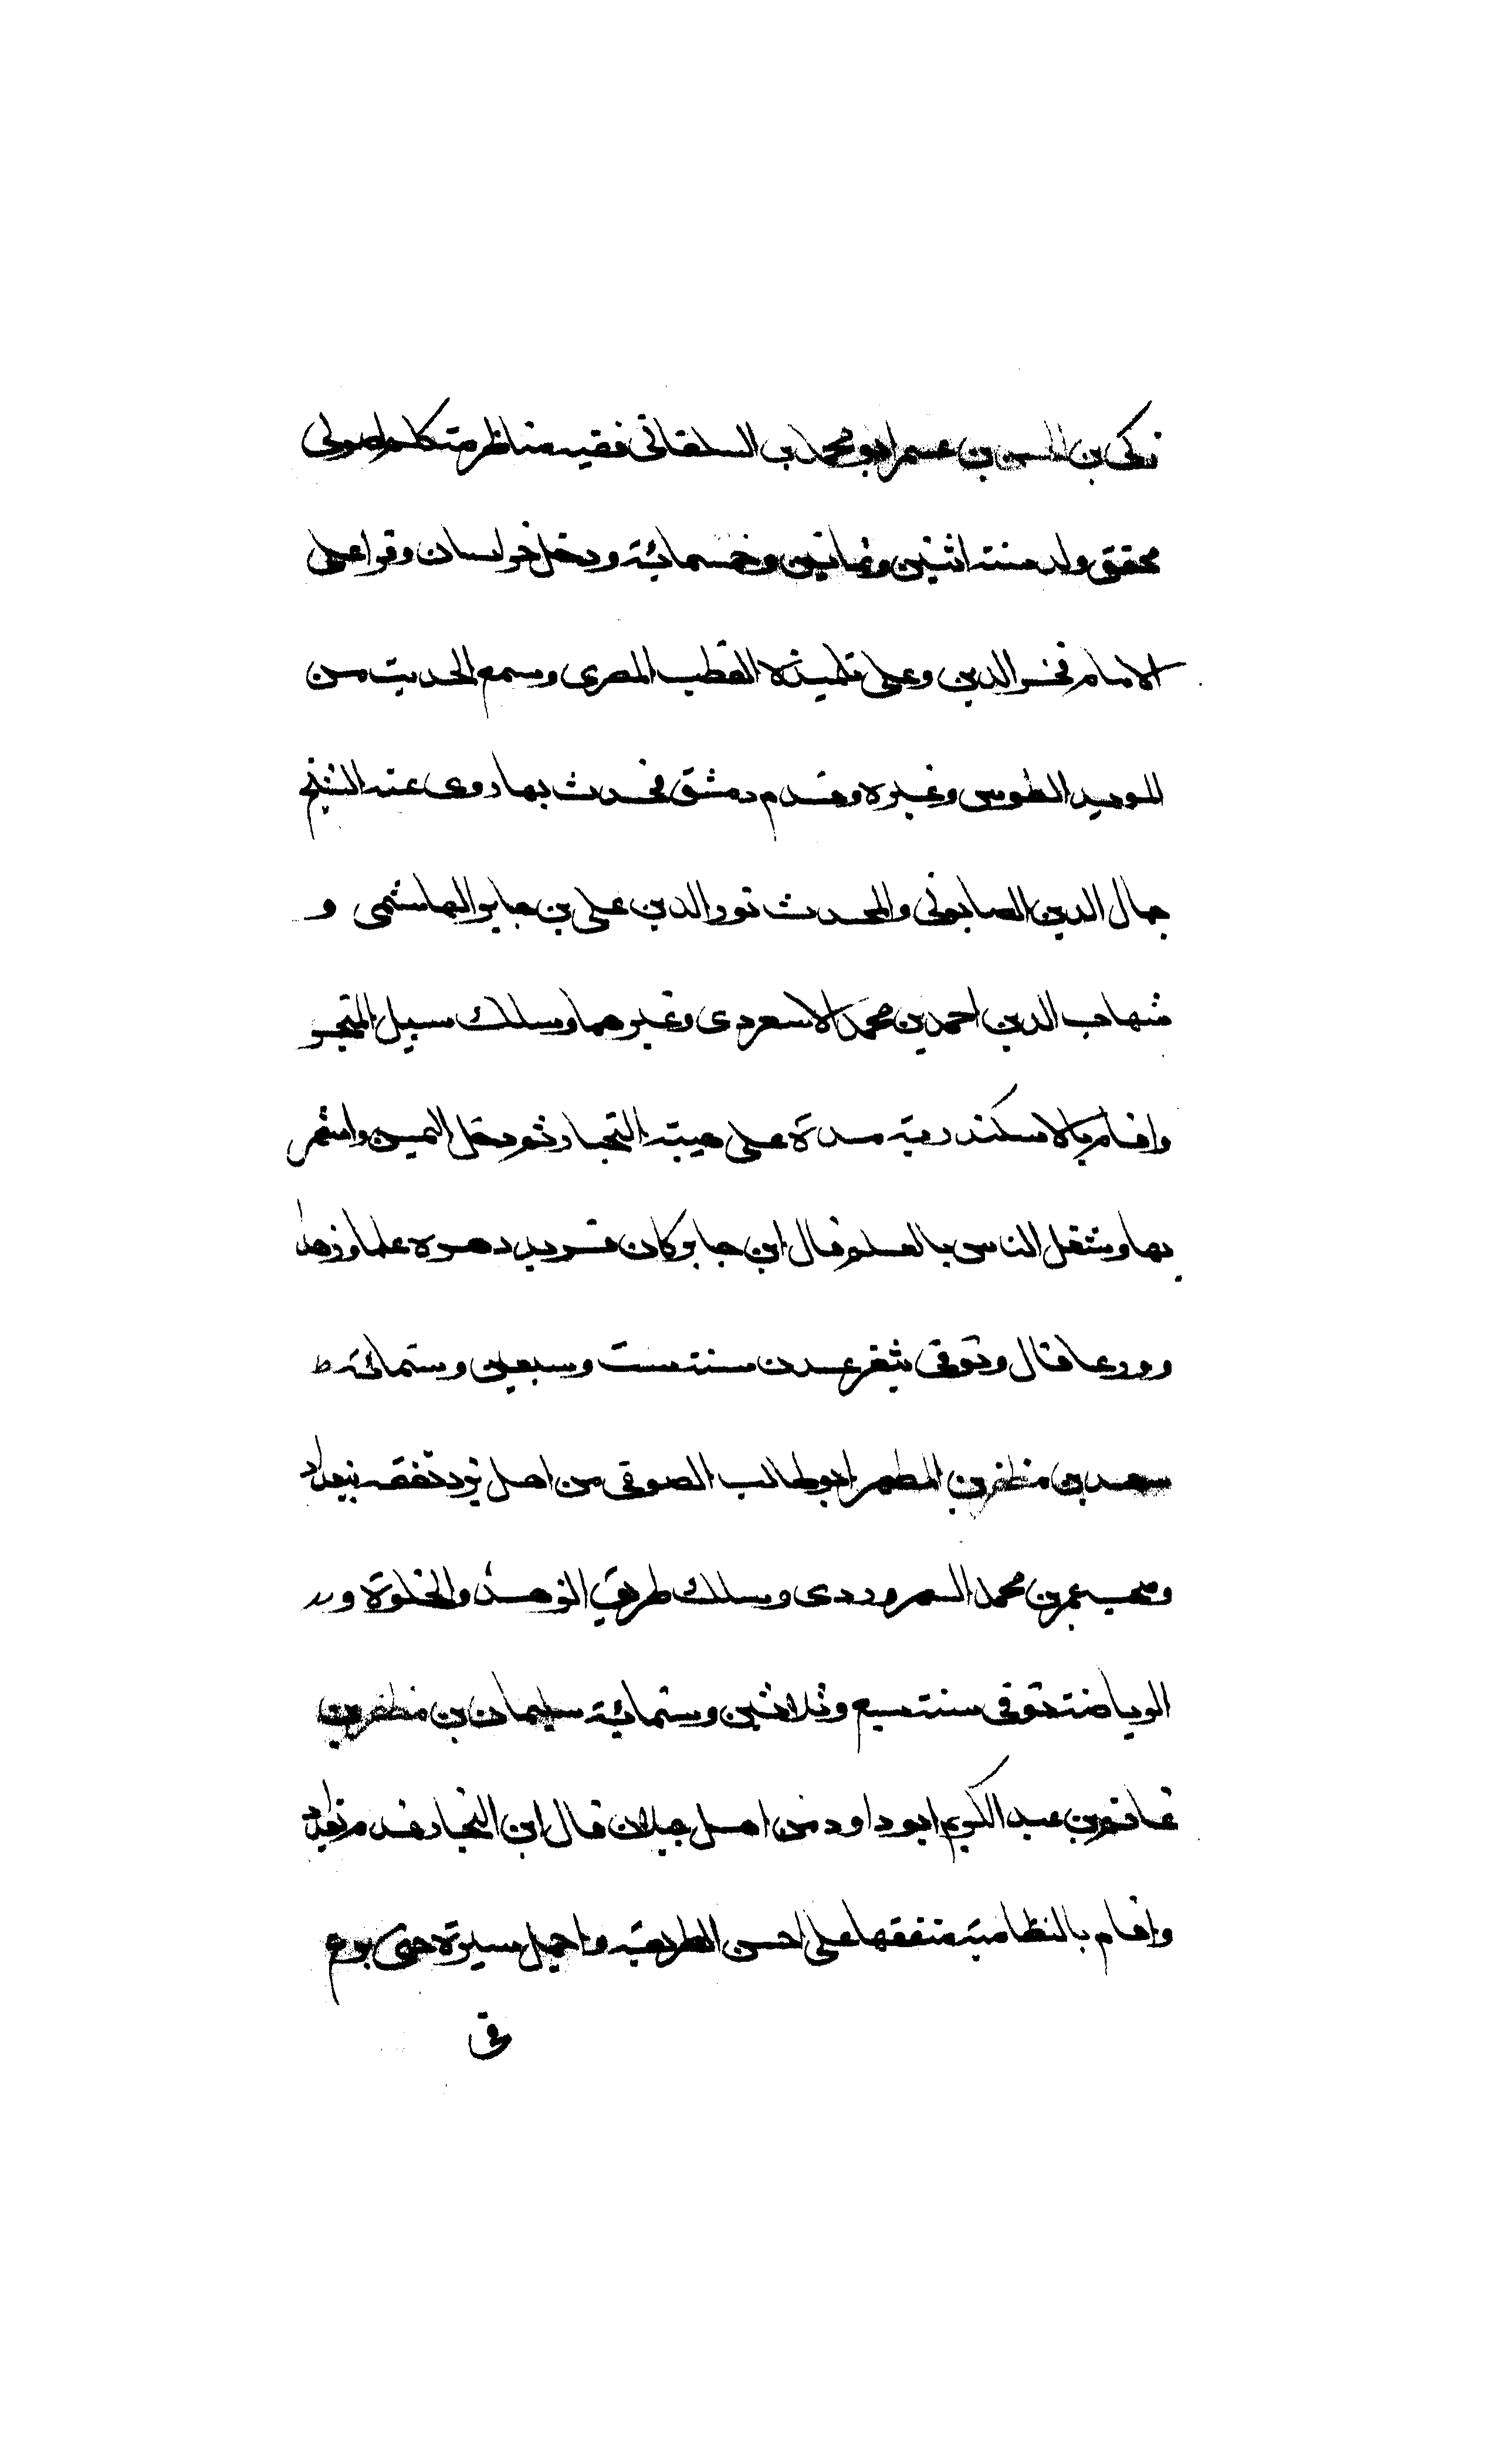 زكى بن الحسن بن عمر ابو محمد بن السلقانى فقيه مناظر متكلم اصولى
محقق ولد سنة اثنين وثمانين وخمسمائة ودخل خراسان وقرا على
الامام فخر الدين وعلى تلميذه القطب المصرى وسمع الحديث من
المويد الطوسى وغيره وقدم دمشق فحدث بها روى عنه الشيخ
جمال الدين الصابونى والمحدث نور الدين على بن جابر الهاشمى و
شهاب الدين احمد بن محمد الاسعردى وغيرهما وسلك سبيل المتجر
واقام بالاسكندرية مدة على هيبة التجار ثم دخل اليمن واشتهر
بها وشغل الناس بالعلم قال ابن جابر كان فريد دهره علما وزهدا
وورعا قال وتوفى بثغر عدن سنة ست وسبعين وستمائة
سعد بن مظفر بن المطهر ابو طالب الصوفى من اهل يزد تفقه ببغداد
وصحب عمر بن محمد السهروردى وسلك طريق الزهد والخلوة و
الرياضة توفى سنة سبع وثلاثين وستمائة سليمان بن مظفر بن
غانم بن عبد الكريم ابو داود من اهل جيلان قال ابن النجار قدم بغداد
واقام بالنظامية متفقها على احسن الطريقة واجمل سيرة حتى برع
فى